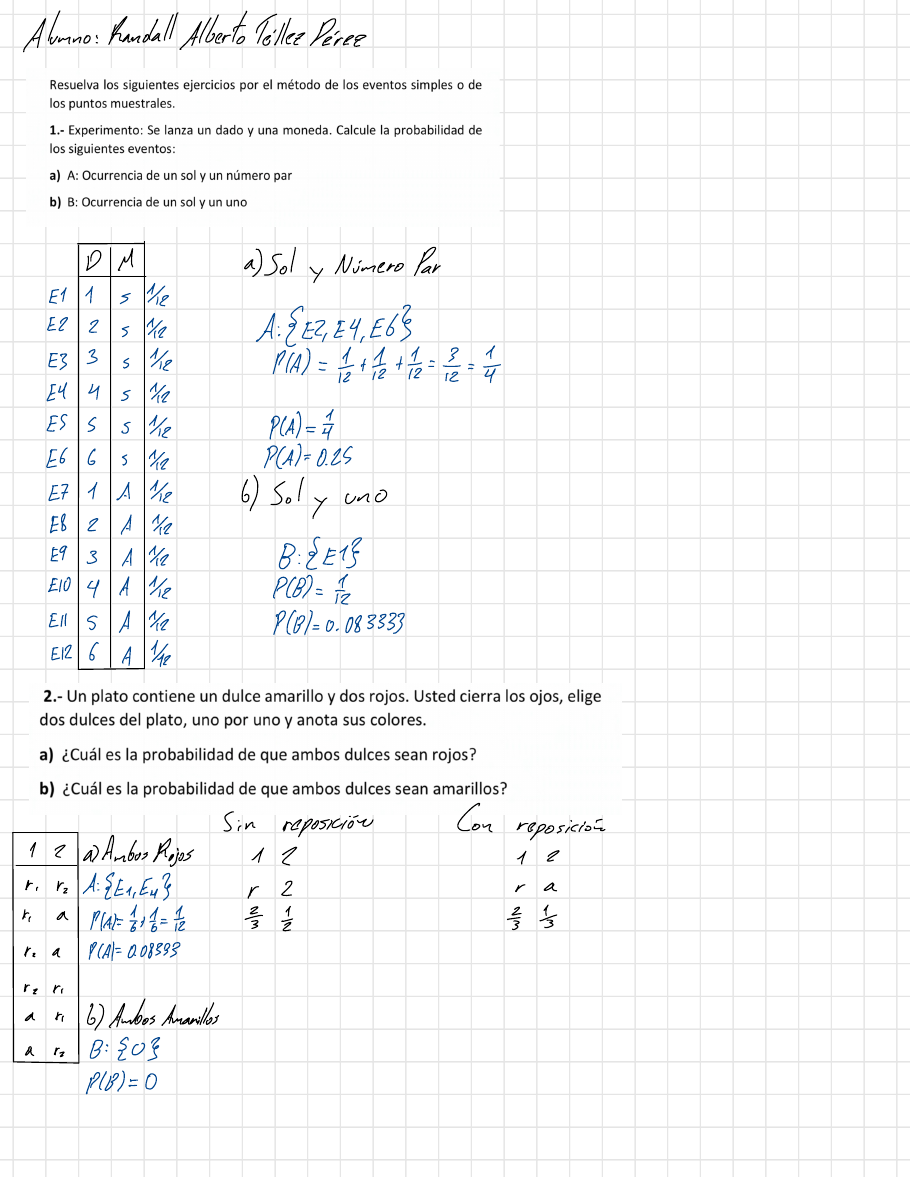 Alumno: Randall Alberto Téllez Pérez
Resuelva los siguientes ejercicios por el método de los eventos simples o de
los puntos muestrales.
1.- Experimento: Se lanza un dado y una moneda. Calcule la probabilidad de
los siguientes eventos:
a) A: Ocurrencia de un sol y un número par
b) B: Ocurrencia de un sol y un uno
D M
E1 1 s 1/12
E2 2 s 1/12
E3 3 s 1/12
E4 4 s 1/12
E5 5 s 1/12
E6 6 s 1/12
E7 1 A 1/12
E8 2 A 1/12
E9 3 A 1/12
E10 4 A 1/12
E11 5 A 1/12
E12 6 A 1/12
a) Sol y Número Par
A: {E2, E4, E6}
P(A) = 1/12 + 1/12 + 1/12 = 3/12 = 1/4
P(A) = 1/4
P(A) = 0.25
b) Sol y uno
B: {E1}
P(B) = 1/12
P(B) = 0.083333
2.- Un plato contiene un dulce amarillo y dos rojos. Usted cierra los ojos, elige
dos dulces del plato, uno por uno y anota sus colores.
a) ¿Cuál es la probabilidad de que ambos dulces sean rojos?
b) ¿Cuál es la probabilidad de que ambos dulces sean amarillos?
1 2
r1 r2
r1 a
r2 a
r2 r1
a r1
a r2
a) Ambos Rojos
A: {E1, E4}
P(A) = 1/6 + 1/6 = 1/12
P(A) = 0.08333
b) Ambos Amarillos
B: {0}
P(B) = 0
Sin reposición
1 2
r 2
2/3 1/2
Con reposición
1 2
r a
2/3 1/3